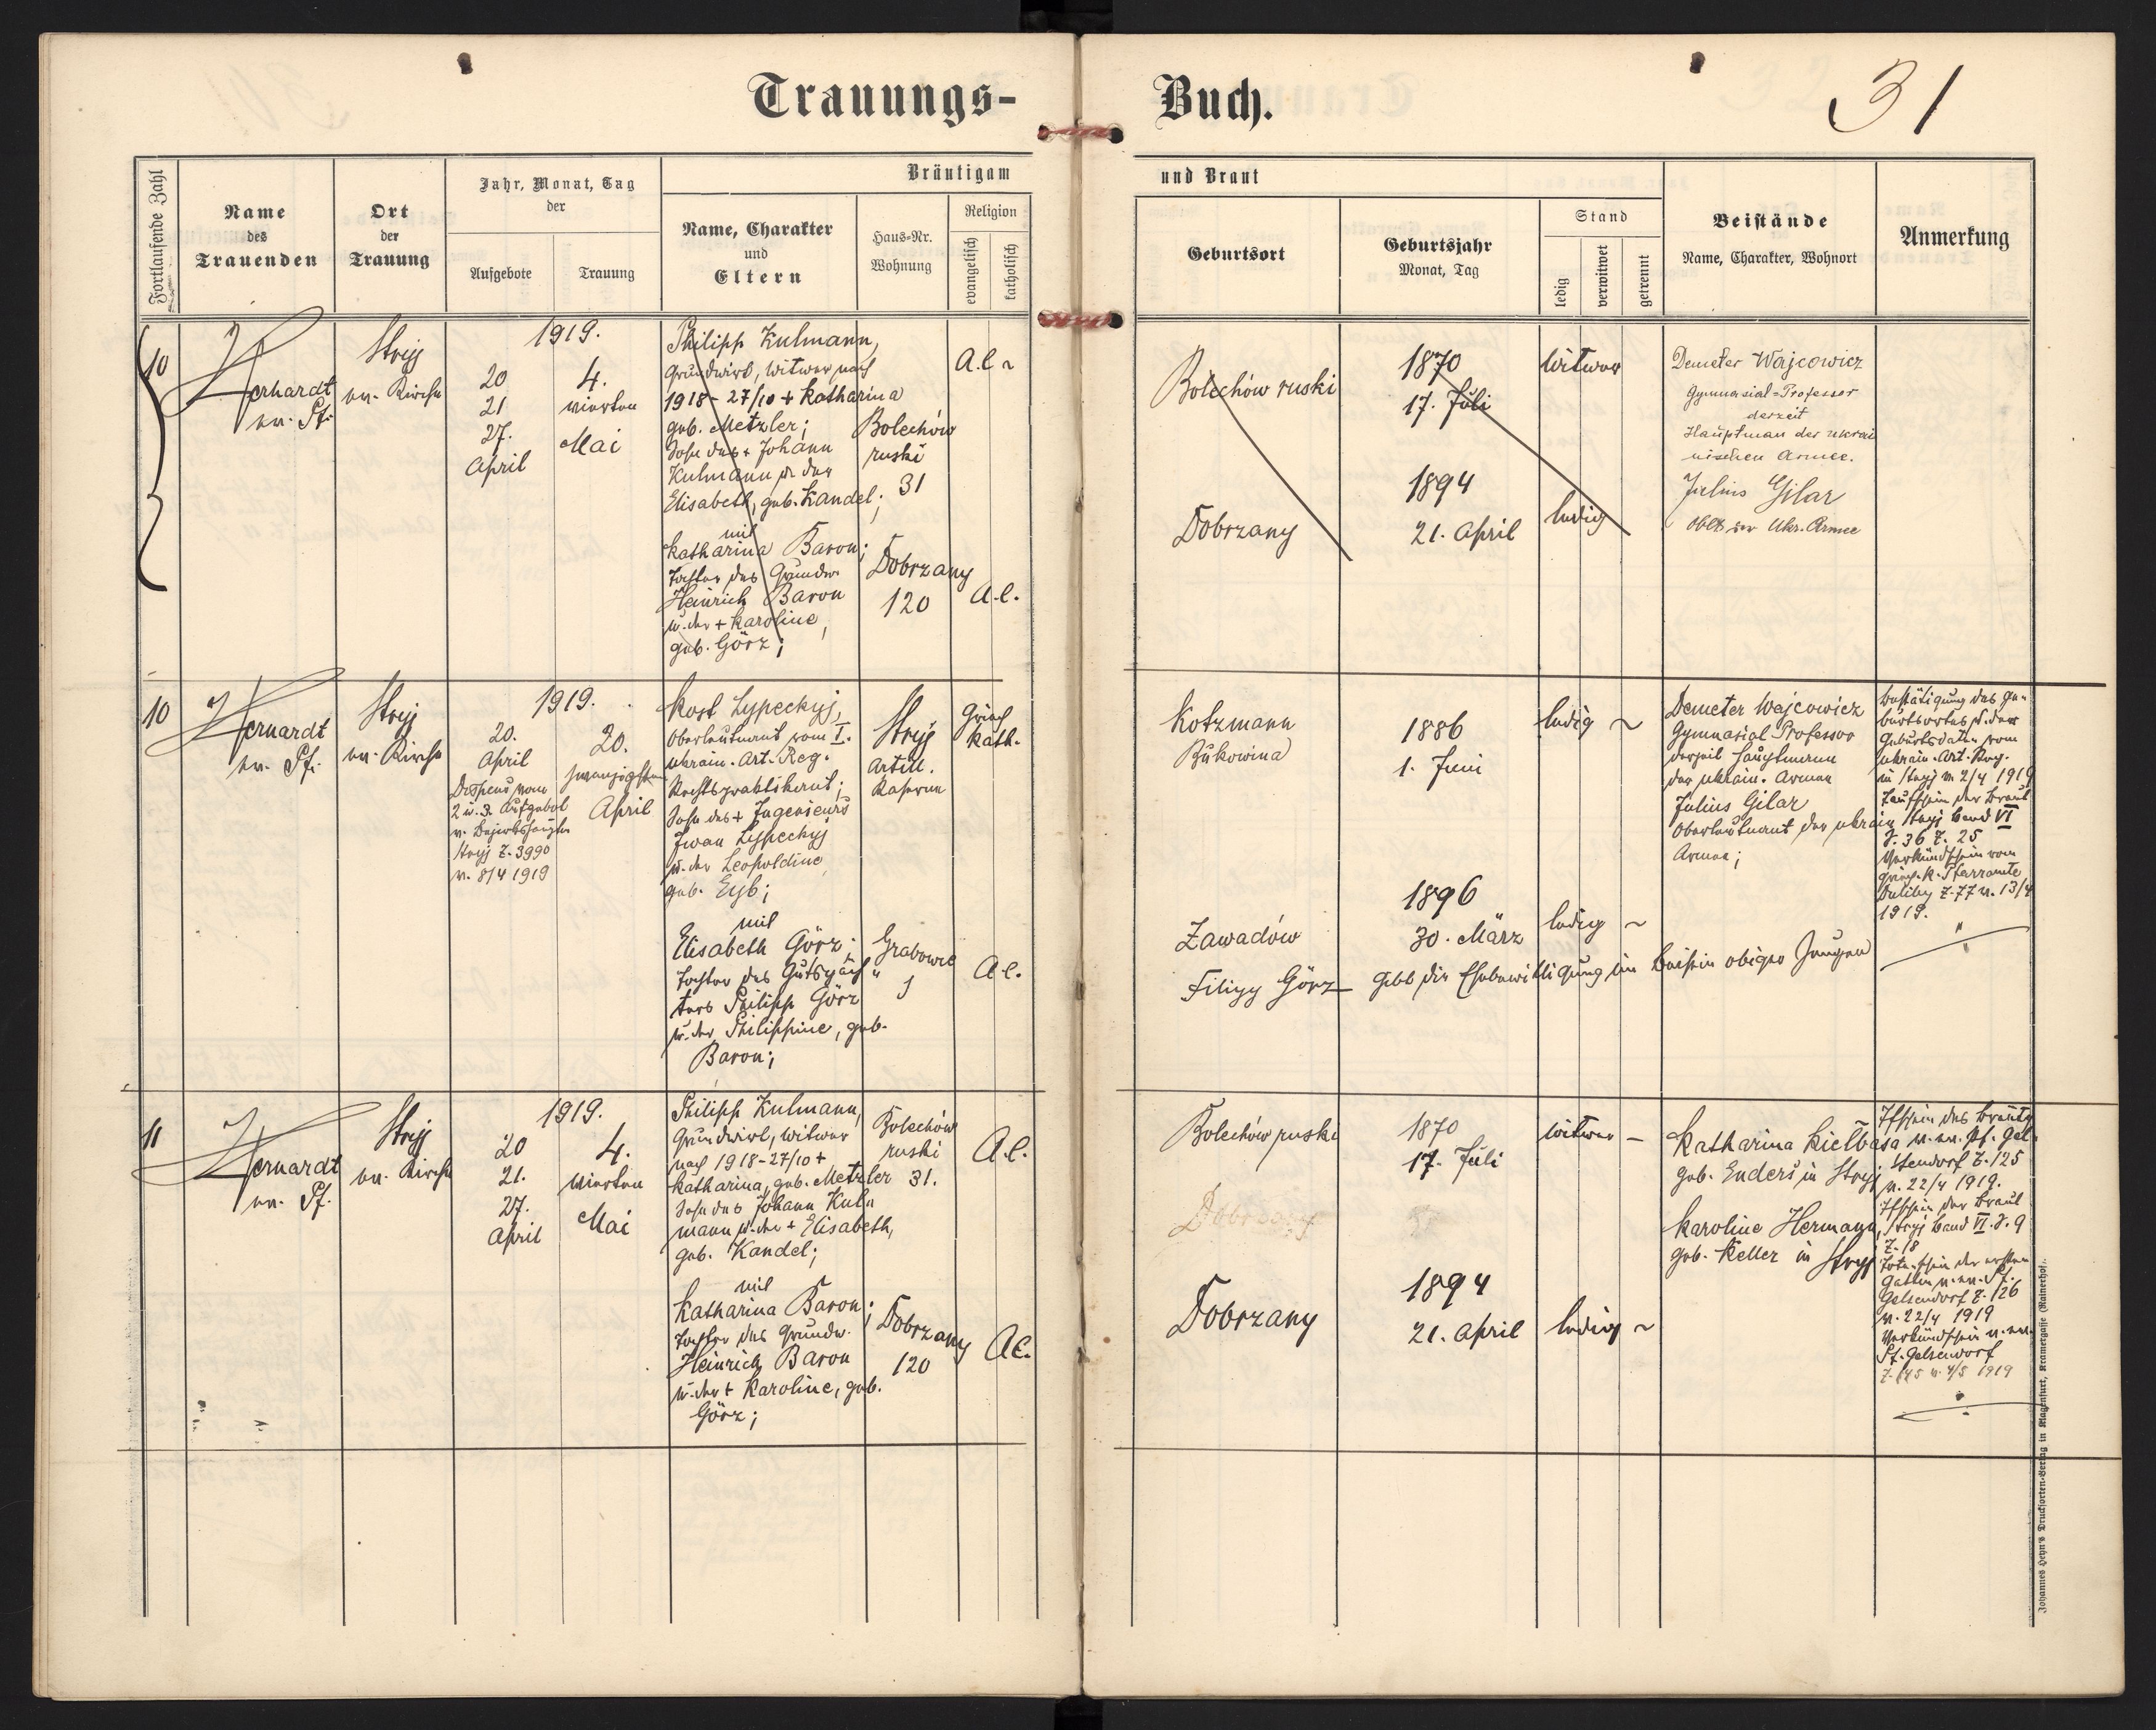 Trauungs-
Buch.
31
Fortlaufende Zahl
Name
des
Trauenden
Ort
der
Trauung
Jahr, Monat, Tag
der
Aufgebote
Trauung
Bräutigam
Name, Charakter
und
Eltern
Haus-Nr.
Wohnung
Religion
evangelisch
katholisch
und Braut
Geburtsort
Geburtsjahr
Monat, Tag
Stand
ledig
verwitwet
getrennt
Beistände
Name, Charakter, Wohnort
Anmerkung
10
ev. Pf.
Stryj
ev. Kirche
1919.
20
21
27.
April
4.
vierten
Mai
Philipp Kulmann,
Grundwirt, Witwer nach
1918 - 27/10 + Katharina
geb. Metzler;
Sohn des + Johann
Kulmann u. der
Elisabeth, geb. Kandel;
Bolechów
ruski
31
A.C.
mit
Katharina Baron;
Tochter des Grundw.
Heinrich Baron
u. der + Karoline,
geb. Görz;
Dobrzany
120
A.C.
Bolechów ruski
1870
17. Juli
Witwer
Dobrzany
1894
21. April
ledig
Demeter Wajcowicz
Gymnasial-Professor
derzeit
Hauptman der ukrai
nischen Armee.
Julius Gilar
Oblt der Ukr. Armee
10
ev. Pf.
Stryj
ev. Kirche
1919.
20.
April
Dispens vom
2 u. 3. Aufgebot
v. Bezirkshauptm
Stryj Z. 3990
v. 8/4 1919
20.
zwanzigsten
April
Kost Lypeckyj,
Oberleutnant vom I.
ukrain. Art. Reg.
Rechtspraktikant;
Sohn des + Ingenieurs
Iwan Lypeckyj
u. der Leopoldine
geb. Eyb;
Stryj
Artill.
Kaserne
Griech
kath.
mit
Elisabeth Görz;
Tochter des Gutspäch
ters Philipp Görz
u. der Philippine, geb.
Baron;
A.C.
Kotzmann
Bukowina
1886
1. Juni
ledig
Zawadów
1896
30. März
ledig
Filipp Görz gebt die Ehebewilligung im Beisein obiger Zeugen
Demeter Wajcowicz
Gymnasial Professor
derzeit Hauptmann
der ukrain. Armee
Julius Gilar
Oberleutnant der ukrain
Armee;
Bestätigung des Ge-
burtsortes u. der
Geburtsdaten vom
ukrain. Art. Reg.
in Stryj v. 2/4 1919
Taufschein der Braut
Stryj Band VI
S. 36 Z. 25
Verkündschein vom
griech. k. Pfarramte
Duliby Z. 77 v. 13/4
1919.
11
ev. Pf.
Stryj
ev. Kirche
1919.
20
21.
27.
April
4.
vierten
Mai
Philipp Kulmann,
Grundwirt, Witwer
nach 1918 - 27/10 +
Katharina, geb. Metzler
Sohn des Johann Kul
mann u. der + Elisabeth,
geb. Kandel;
Bolechów
ruski
31.
A.C.
mit
Katharina Baron;
Tochter des Grundw.
Heinrich Baron
u. der + Karoline, geb.
Görz;
Dobrzany
120
A.C.
Bolechów ruski
1870
17. Juli
Witwer
Dobrzany
1894
21. April
ledig
Katharina Kiełbasa
geb. Enders in Stryj
Karoline Hermann,
geb. Keller in Stryj
Tfschein des Bräutg
v. ev. Pf. Gel-
sendorf Z. 125
v. 22/4 1919.
Tfschein der Braut
Stryj Band VI. S. 9
Z. 18
Totenschein der ersten
Gattin v. ev. Pf.
Gelsendorf Z. 126
v. 22/4 1919
Verkündschein v. ev.
Pf. Gelsendorf
Z. 145 v. 4/5 1919
Johannes Heyn's Drucksorten-Verlag in Klagenfurt, Kramergasse (Rainerhof).